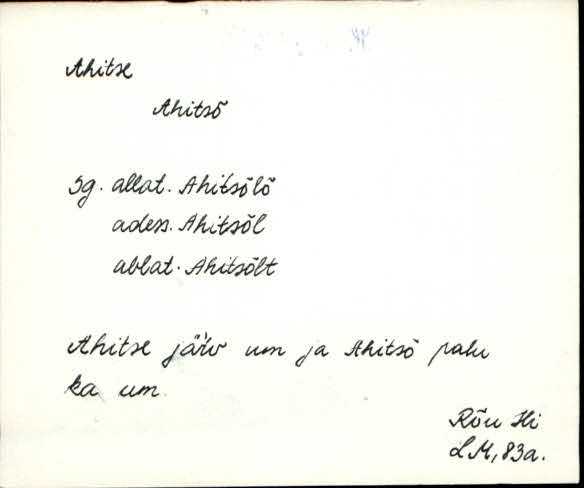 Ahitse
Ahitsõ
Sg. allat. Ahitsõlõ
adess. Ahitsõl
ablat. Ahitsõlt
Ahitse järv um ja Ahitsõ palu
ka um.
Rõu Hi
LM, 83a.